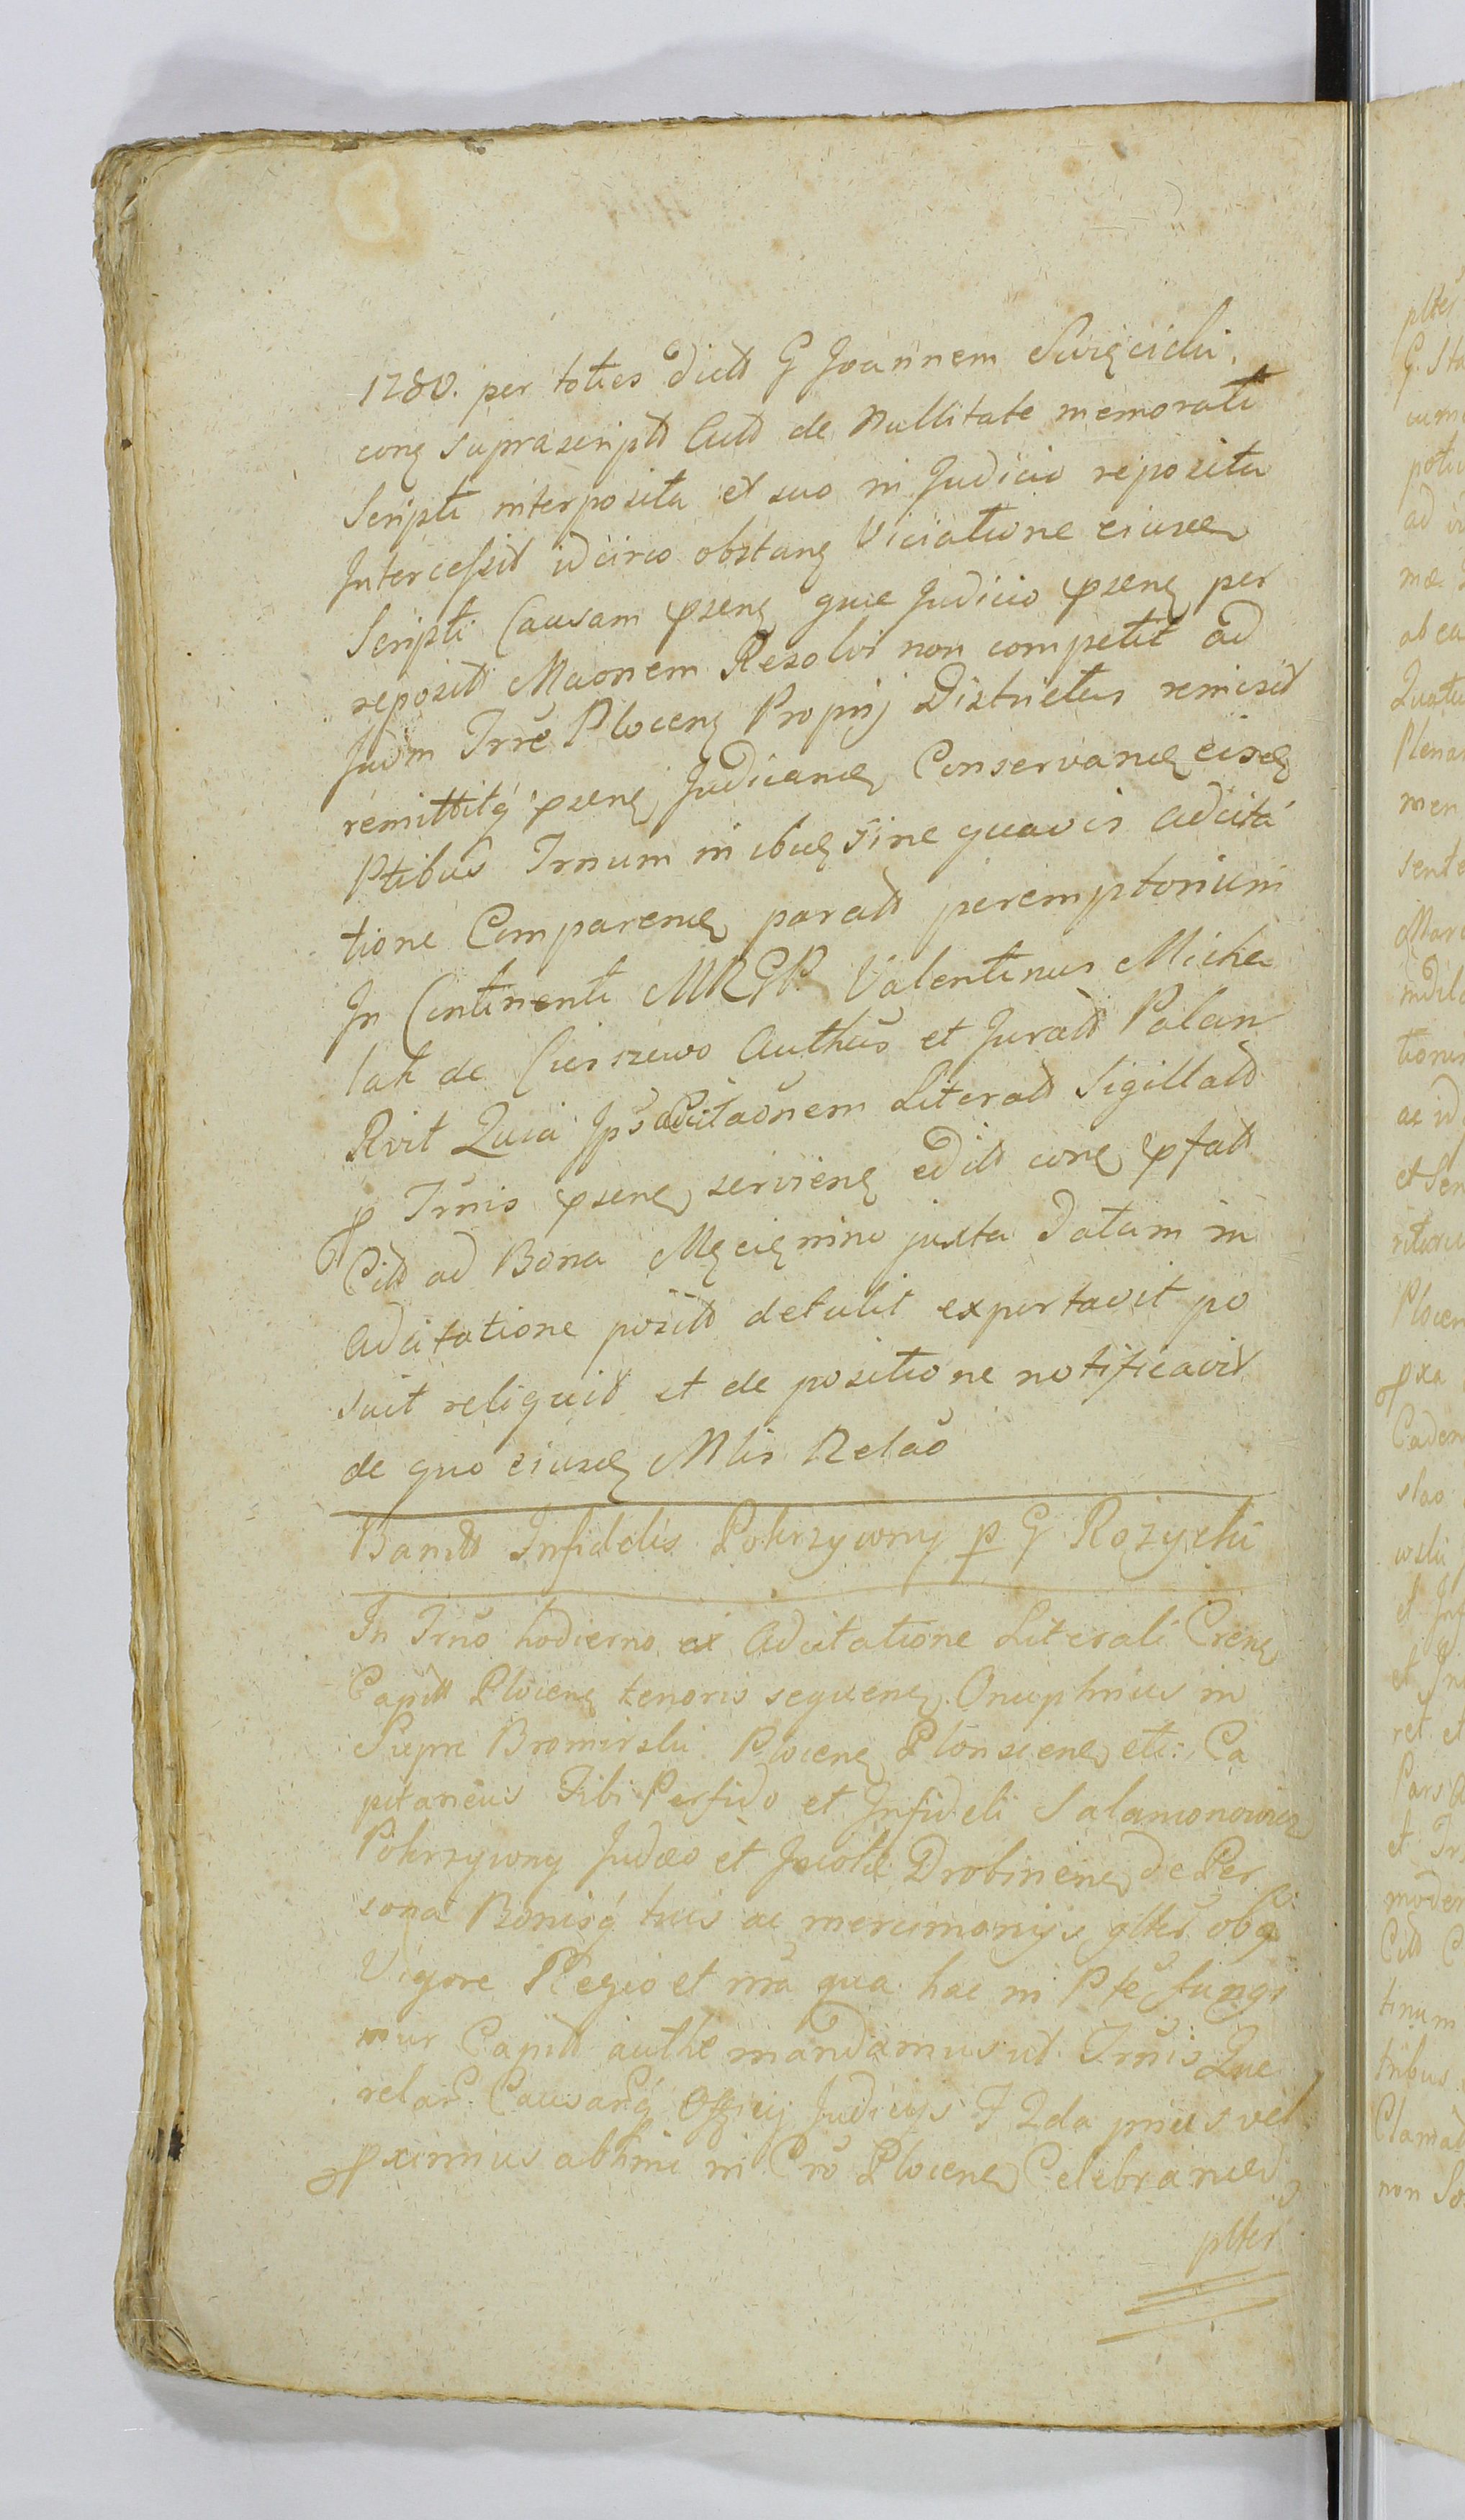 1780. per toties dictt G Joannem Swięcicki.
conq suprascriptt Actt de Nullitate memorati
Scripti interposita et suo in Judicio reposita
Intercessit idcirco obstanq Viciatione eiusq
Scripti Causam psenq quae Judicio psenq per
reposit Maonem Resolvi non competit ad
Judm Trre Plocenq Proprij Districtus remisit
remittitq psenq Judicanq Conservanq eisq
Ptibus Trnum in ibiq sine quavis Adcita
tione Comparenq paratt peremptorium
In Continenti MRGR. Valentinus Micha
lak de Cierszewo Authus et Juratt Palam
Rvit Quia Ips Adcitaonem Literatt Sigillatt
p Trnis psenq servienq editt conq pfatt
Citt ad Bona Męcięnino juxta Datam in
Adcitatione positt detulit exportavit po
suit reliquit et de positione notificavit
de quo eiusq Mlis Relao
Banitt Infidelis Pokrzywny p G Rożycki
In Trno hodierno ex Adcitatione Literali Crenq
Capitt Plocenq tenoris sequenq. Onuphrius in
Siepre Bromirski. Plocenq Plonscenq etc: Ca
pitaneus Tibi Perfido et Infideli Salamonowicz
Pokrzywny Judæo et Incolæ Drobinenq de Per
sona Bonisq tuis ac mercimonijs glter obq
Vigore Regio et nra qua hac in Pte fungi
mur Capitt authe mandamus ut Trnis Que
relar Causarq Officij Judicijs F 2da prius vel
pximius abhinc in Cro Plocenq Celebranq
plter